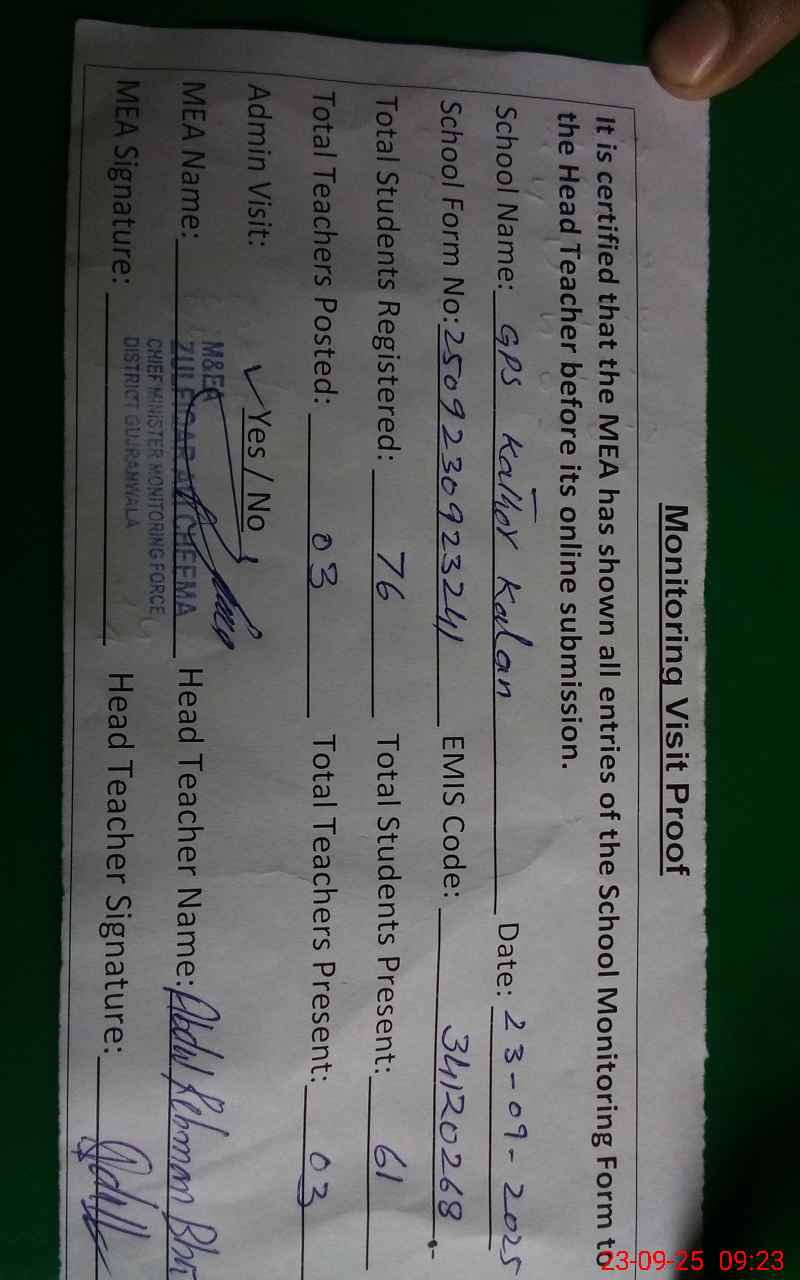 Monitoring Visit Proof
It is certified that the MEA has shown all entries of the School Monitoring Form to
the Head Teacher before its online submission.
School Name: GPS Kalhor Kalan Date: 23-09-2025
School Form No: 2509230923241 EMIS Code: 34120268
Total Students Registered: 76 Total Students Present: 61
Total Teachers Posted: 03 Total Teachers Present: 03
Admin Visit: ✓ Yes / No
M&EA
MEA Name: ZULFIQAR ALI CHEEMA Head Teacher Name: Abdul Rehman
CHIEF MINISTER MONITORING FORCE
DISTRICT GUJRANWALA
MEA Signature: Head Teacher Signature:
23-09-25 09:23